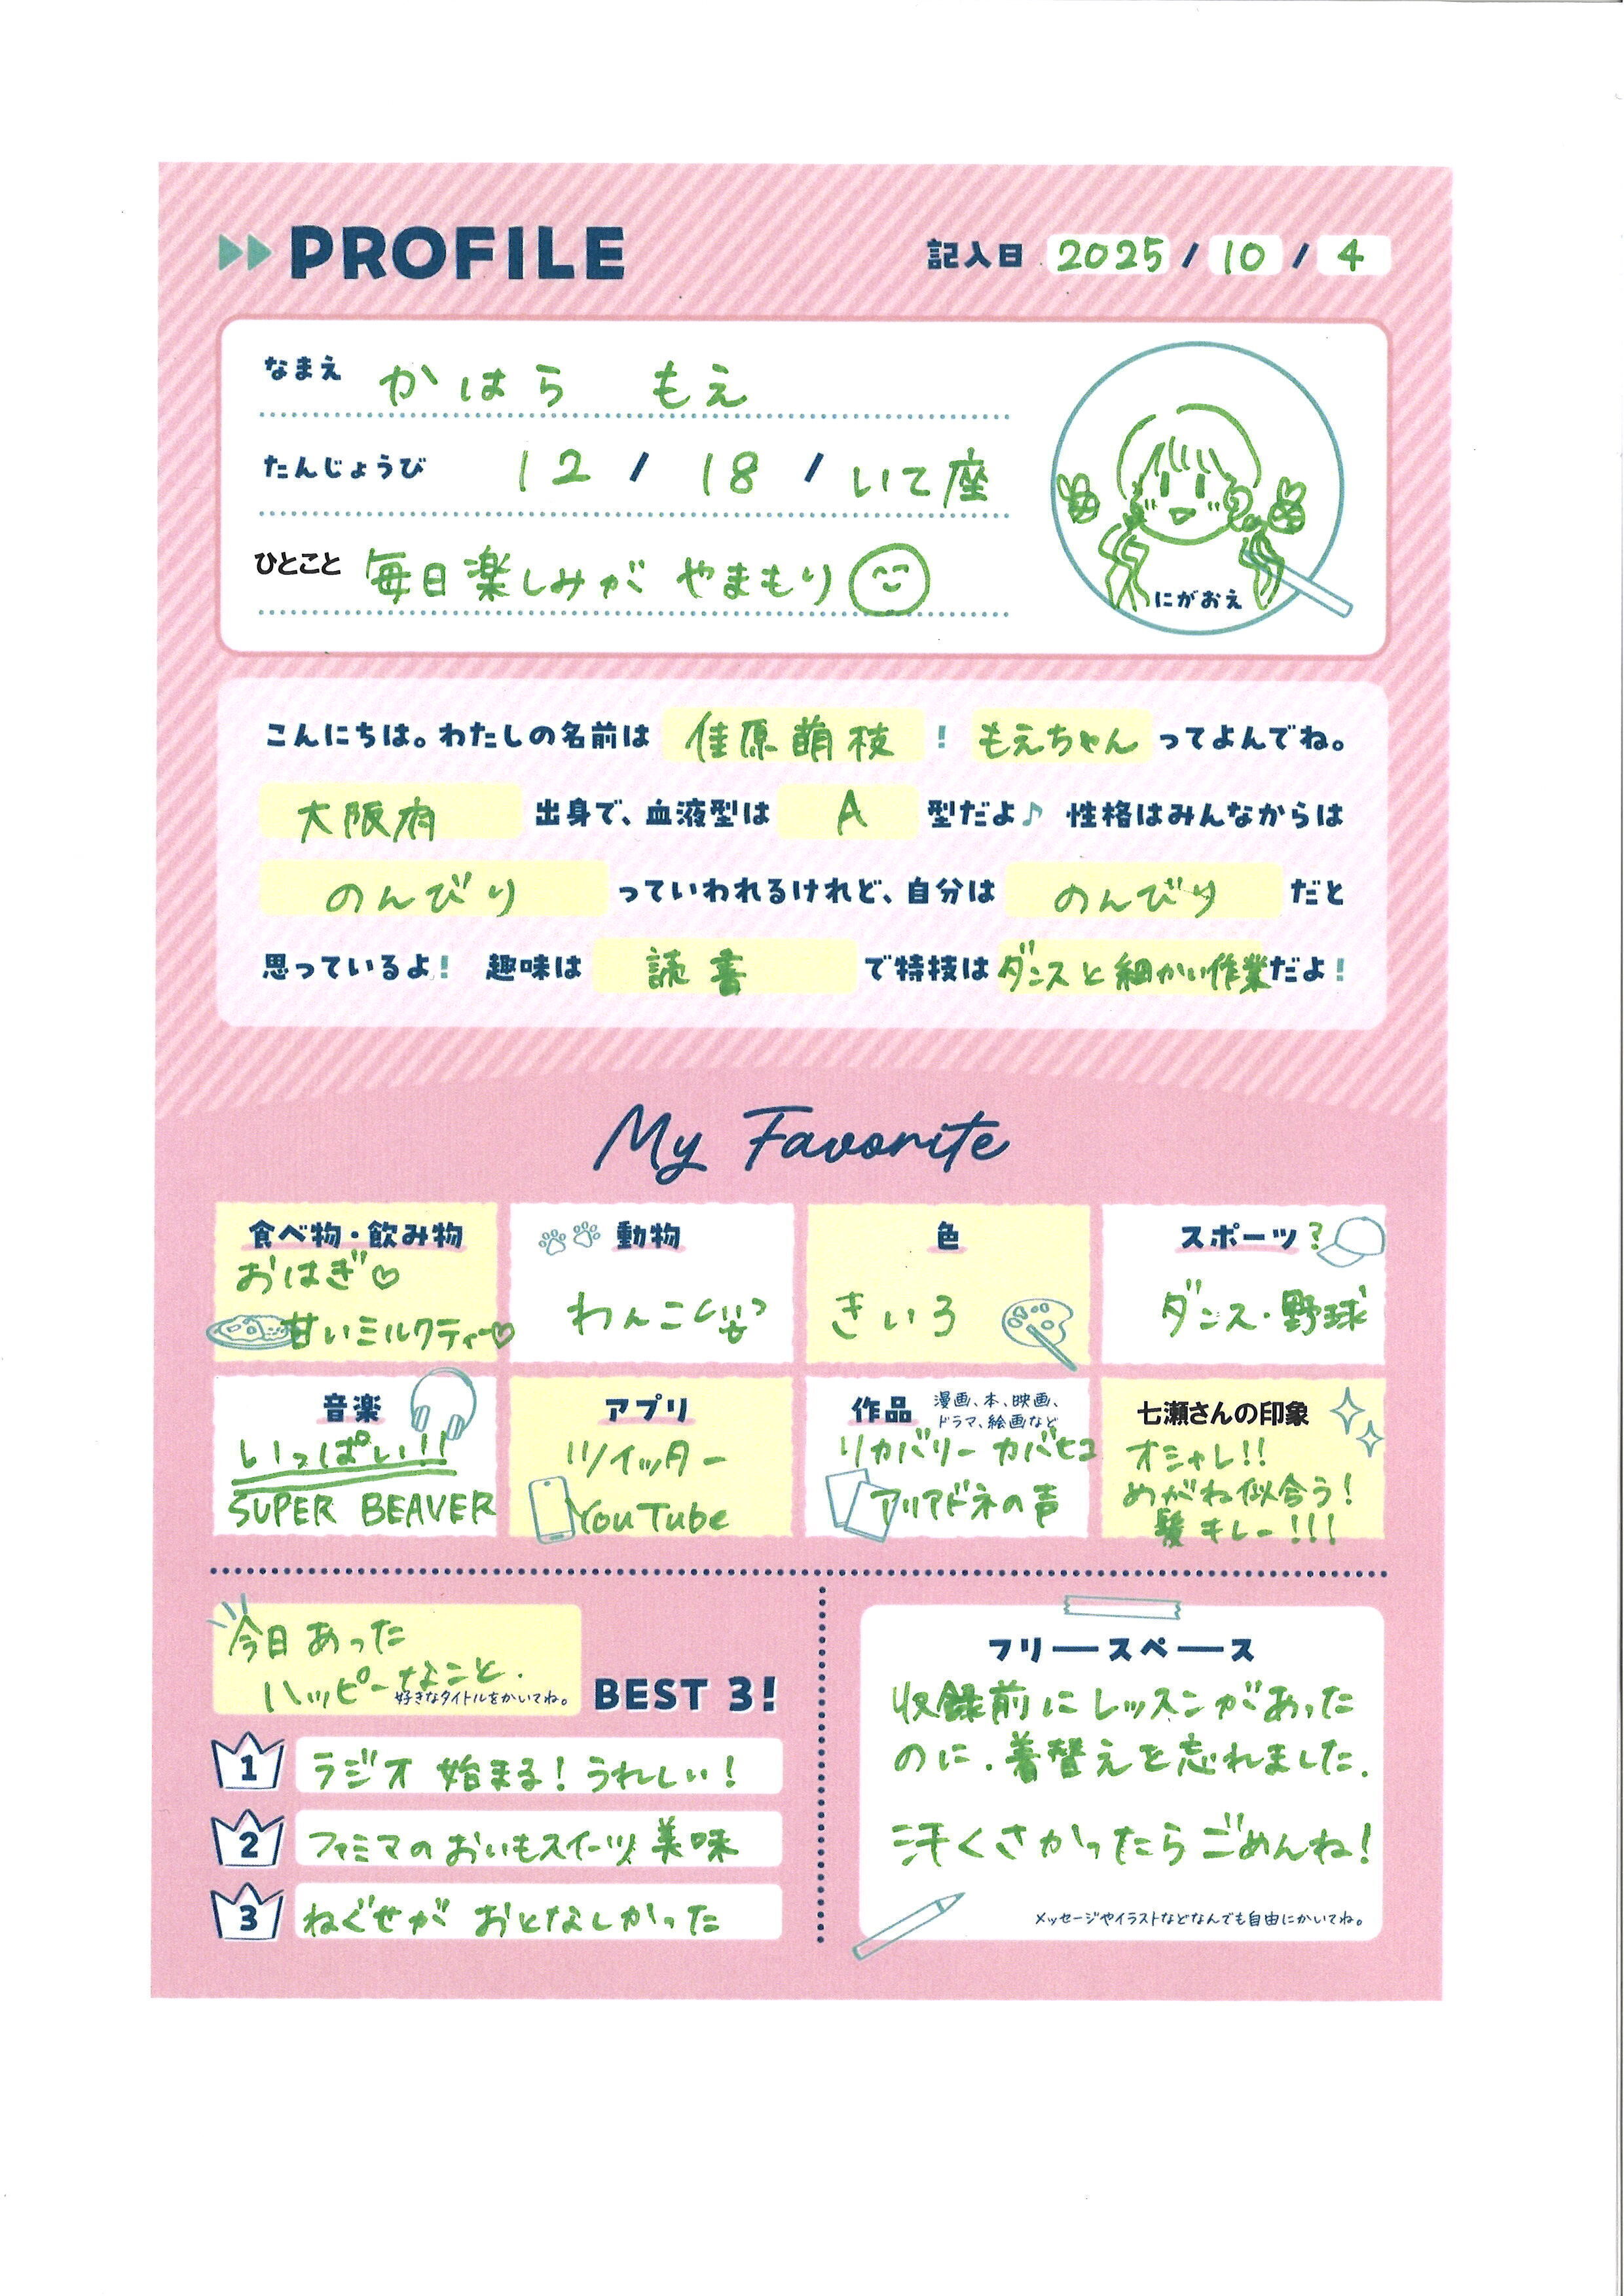 PROFILE 記入日 2025 / 10 / 4
なまえ かはら もえ
たんじょうび 12 / 18 / いて座
ひとこと 毎日楽しみが やまもり
にがおえ
こんにちは。わたしの名前は 佳原萌枝 ! もえちゃん ってよんでね。
大阪府 出身で、血液型は A 型だよ♪ 性格はみんなからは
のんびり っていわれるけれど、自分は のんびり だと
思っているよ! 趣味は 読書 で特技は ダンスと細かい作業だよ!
My Favorite
食べ物・飲み物
おはぎ♡
甘いミルクティー♡
動物
わんこ
色
きいろ
スポーツ?
ダンス・野球
音楽
いっぱい!!
SUPER BEAVER
アプリ
ツイッター
YouTube
作品 漫画、本、映画、
ドラマ、絵画など
リカバリー カバヒコ
アリアドネの声
七瀬さんの印象
オシャレ!!
めがね似合う!
髪キレー!!!
今日あった
ハッピーなこと.
好きなタイトルをかいてね。
BEST 3!
1 ラジオ 始まる! うれしい!
2 ファミマのおいもスイーツ 美味
3 ねぐせが おとなしかった
フリースペース
収録前にレッスンがあった
のに.着替えを忘れました.
汗くさかったらごめんね!
メッセージやイラストなどなんでも自由にかいてね。